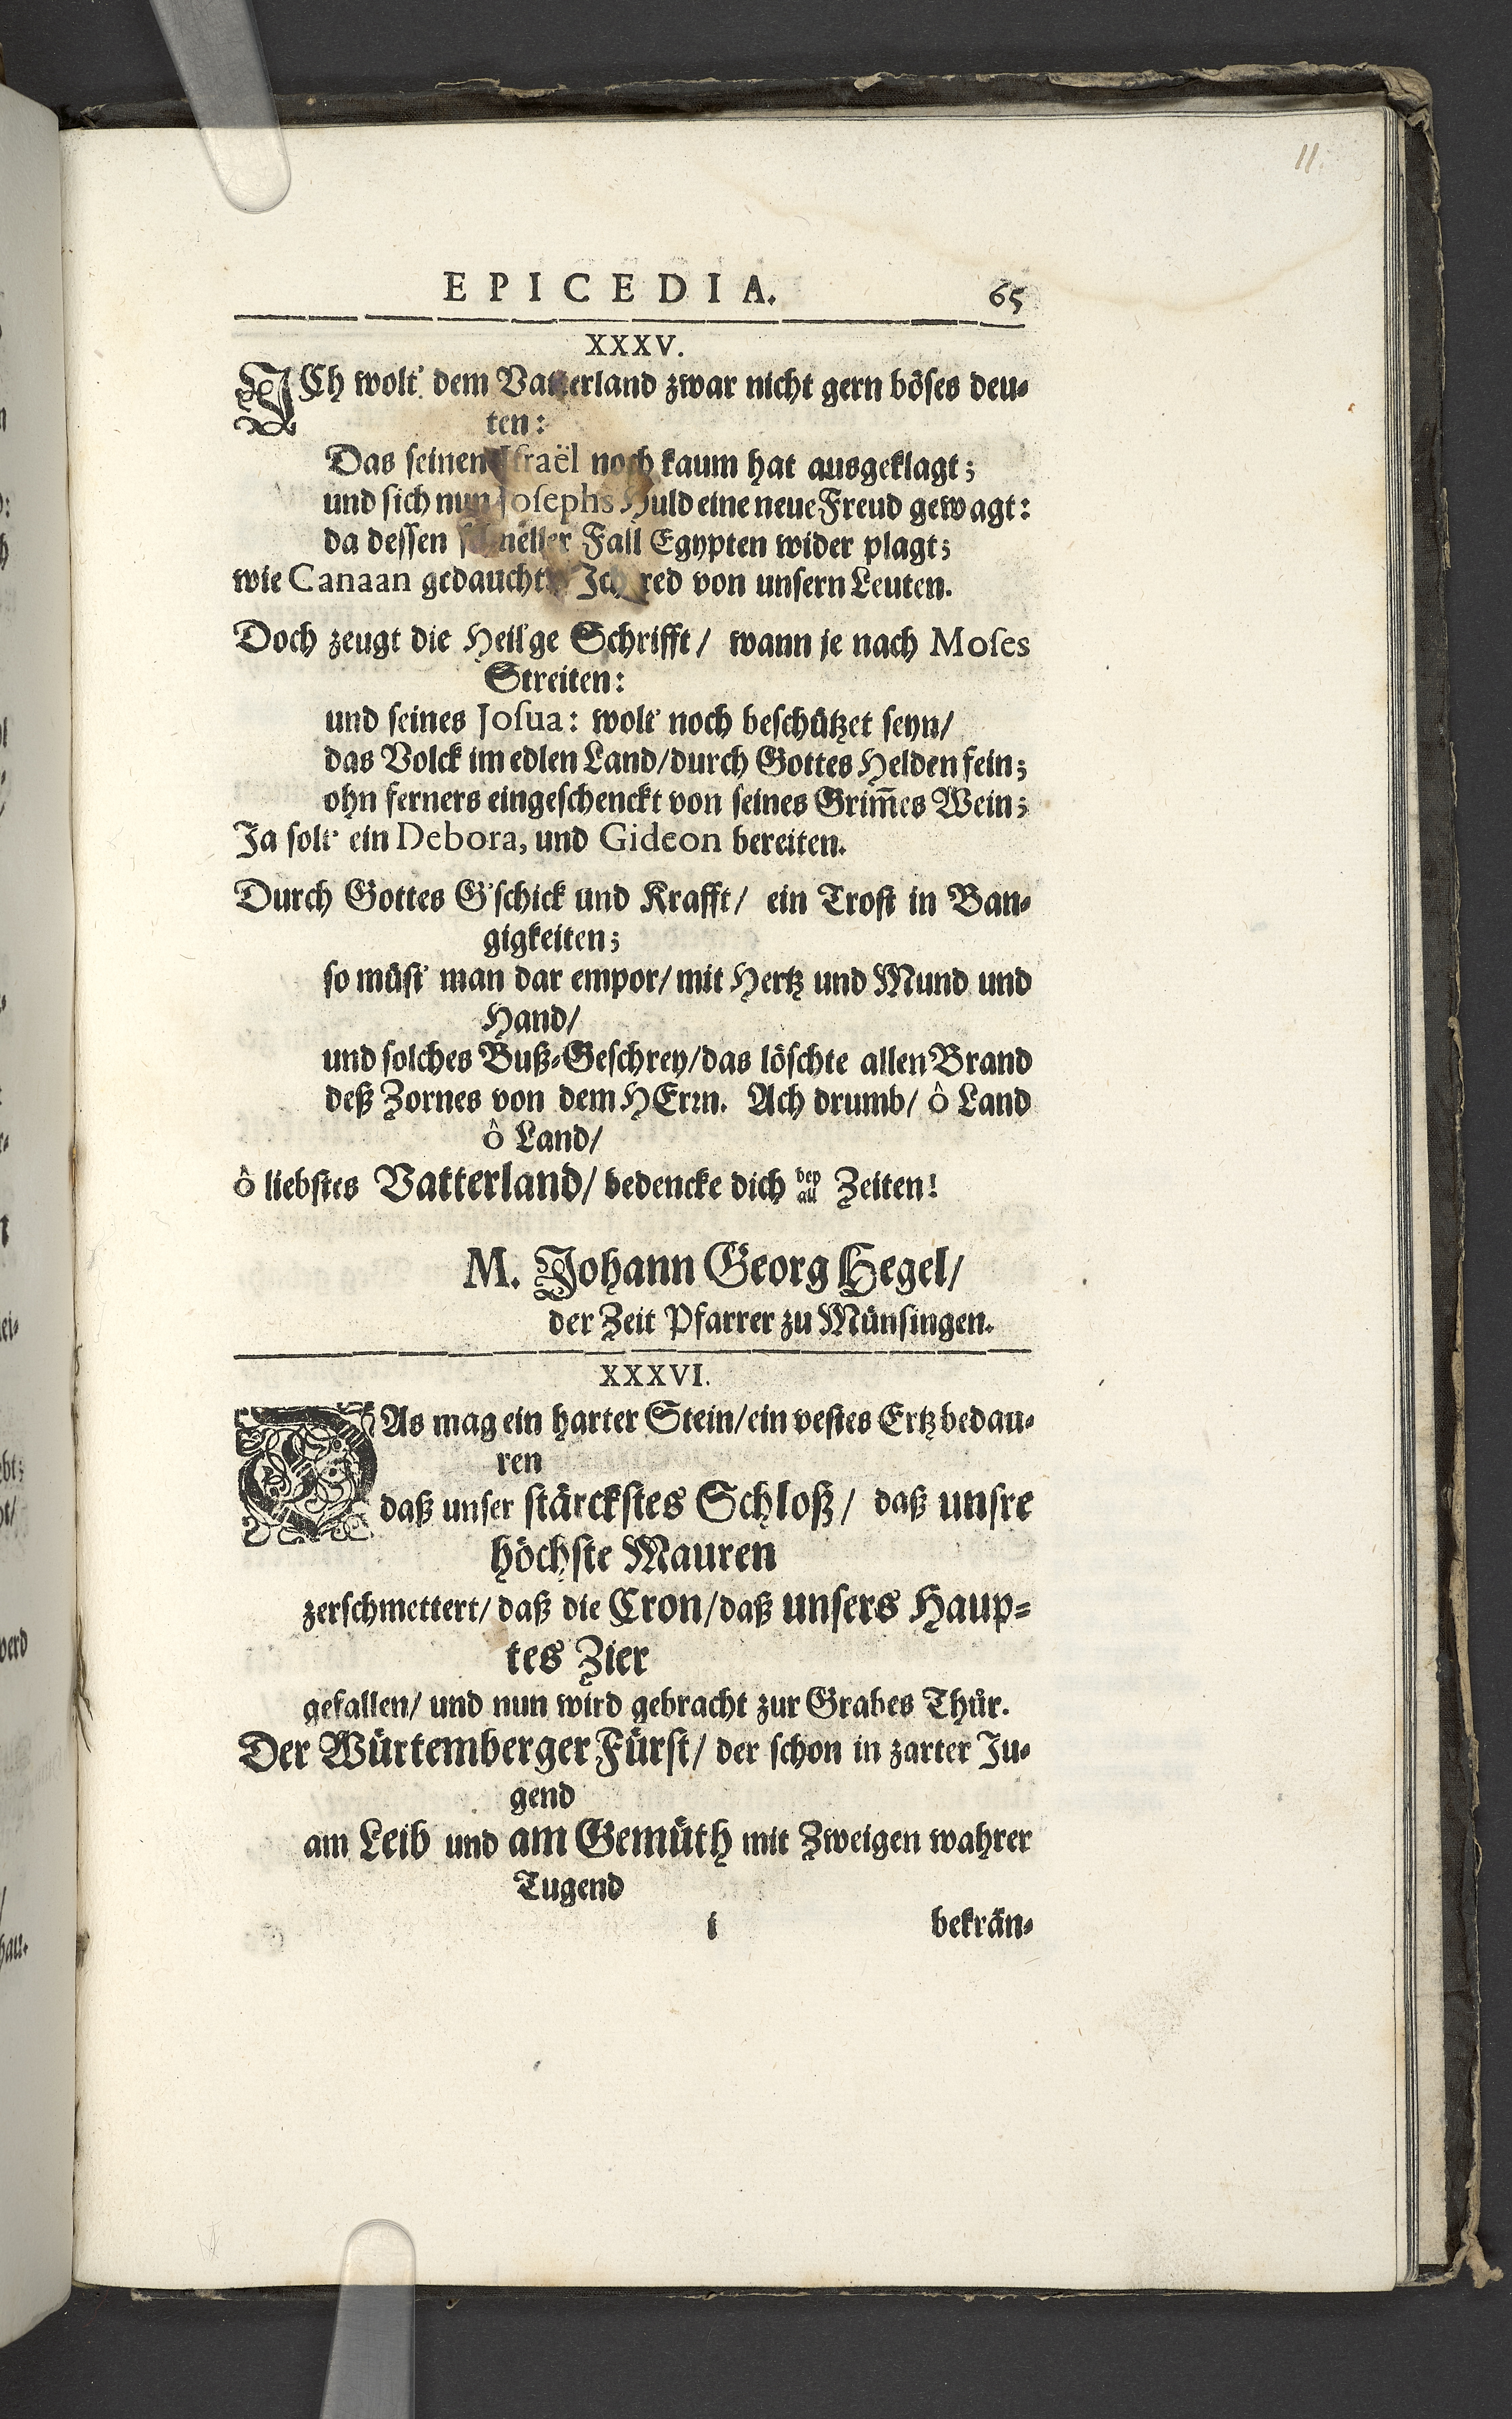 11.
EPICEDIA. 65
XXXV.
ICh wolt' dem Vatterland zwar nicht gern böses deu-
ten:
Das seinen Israël noch kaum hat ausgeklagt;
und sich nun Josephs Huld eine neue Freud gewagt:
da dessen schneller Fall Egypten wider plagt;
wie Canaan gedaucht. Ich red von unsern Leuten.
Doch zeugt die Heil'ge Schrifft/ wann je nach Moses
Streiten:
und seines Josua: wolt' noch beschützet seyn/
das Volck im edlen Land/durch Gottes Helden fein;
ohn ferners eingeschenckt von seines Grim̃es Wein;
Ja solt' ein Debora, und Gideon bereiten.
Durch Gottes G'schick und Krafft/ ein Trost in Ban-
gigkeiten;
so müst' man dar empor/ mit Hertz und Mund und
Hand/
und solches Buß-Geschrey/das löschte allen Brand
deß Zornes von dem HErrn. Ach drumb/ ô Land
ô Land/
ô liebstes Vatterland/ bedencke dich bey all Zeiten!
M. Johann Georg Hegel/
der Zeit Pfarrer zu Münsingen.
XXXVI.
DAs mag ein harter Stein/ein vestes Ertz bedau-
ren
daß unser stärckstes Schloß/ daß unsre
höchste Mauren
zerschmettert/ daß die Cron/daß unsers Haup-
tes Zier
gefallen/ und nun wird gebracht zur Grabes Thür.
Der Würtemberger Fürst/ der schon in zarter Ju-
gend
am Leib und am Gemüth mit Zweigen wahrer
Tugend
i bekrän-